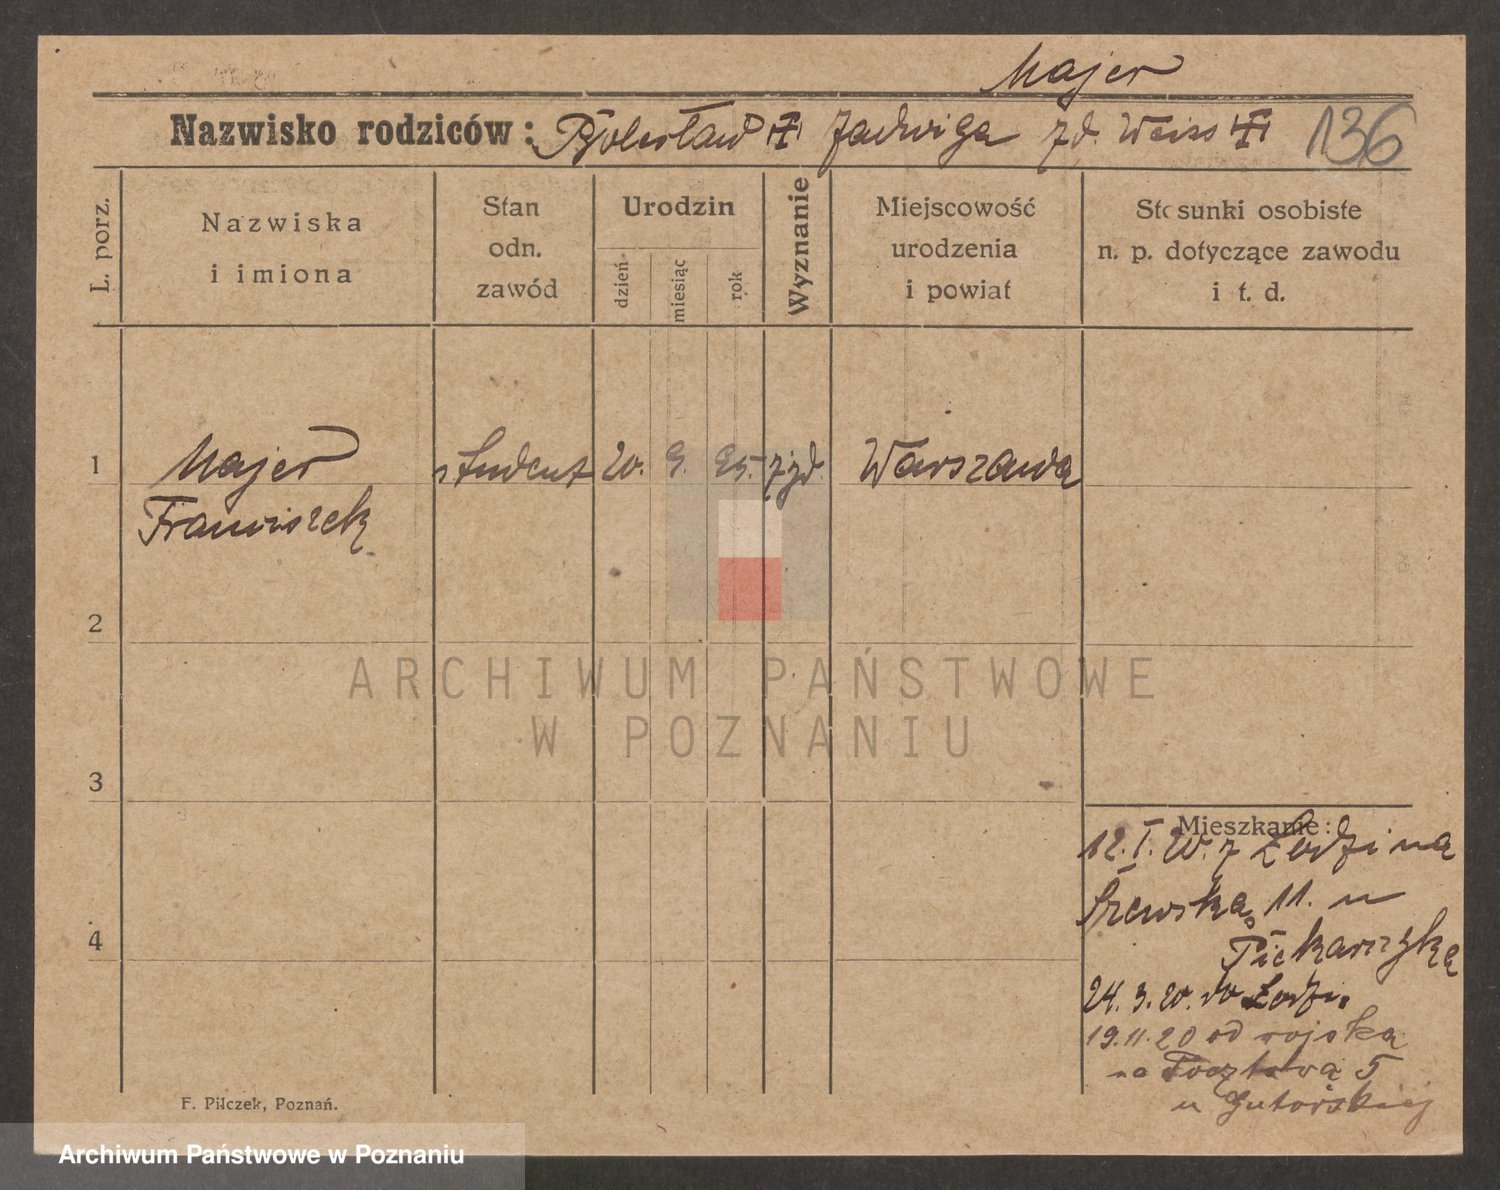 Majer
Nazwisko rodziców: Bolesław Jadwiga zd. Weiss 136
L. porz.
Nazwiska
i imiona
Stan
odn.
zawód
Urodzin
dzień
miesiąc
rok
Wyznanie
Miejscowość
urodzenia
i powiat
Stosunki osobiste
n. p. dotyczące zawodu
i t. d.
1 Majer student 20. 9. 95. żyd. Warszawa
Franciszek
2
ARCHIWUM PAŃSTWOWE
W POZNANIU
3
Mieszkanie:
12. I. 20. z Łodzi na
Szewska 11. u
4
24. 3. 20. do Łodzi.
19.11.20 od wojska
na Pocztową 5
u Gutorskiej
F. Pilczek, Poznań.
Archiwum Państwowe w Poznaniu